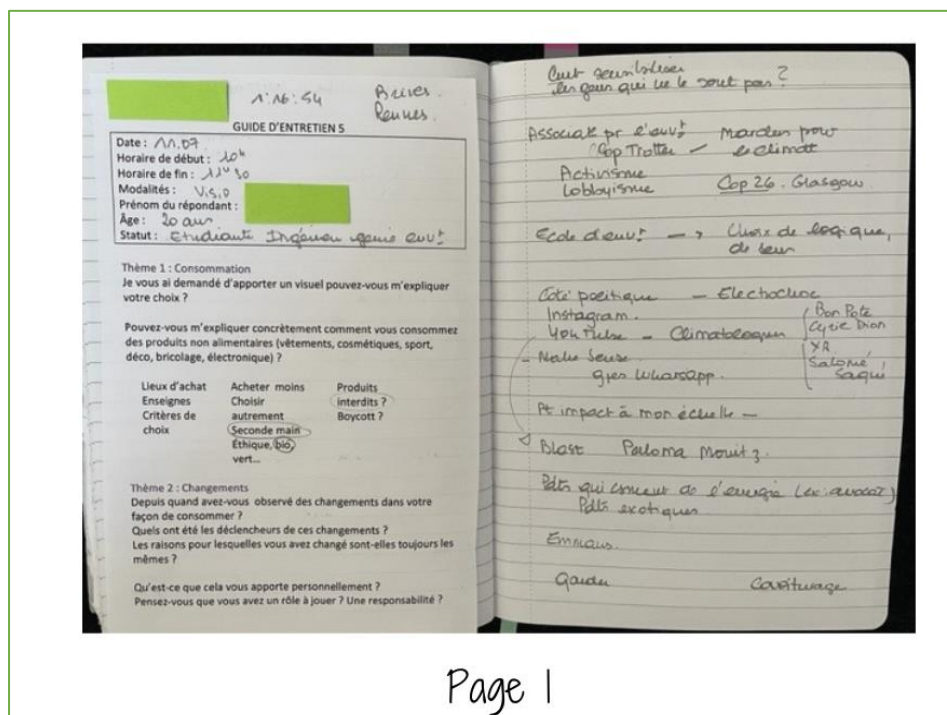 1:16:54
Rennes.
GUIDE D'ENTRETIEN 5
Date : 11.07
Horaire de début : 10h
Horaire de fin : 11h30
Modalités : Visio
Prénom du répondant :
Âge : 20 ans
Statut : Etudiante Ingénieur génie envt
Thème 1 : Consommation
Je vous ai demandé d'apporter un visuel pouvez-vous m'expliquer
votre choix ?
Pouvez-vous m'expliquer concrètement comment vous consommez
des produits non alimentaires (vêtements, cosmétiques, sport,
déco, bricolage, électronique) ?
Lieux d'achat Acheter moins Produits
Enseignes Choisir interdits ?
Critères de autrement Boycott ?
choix Seconde main
Éthique, bio,
vert...
Thème 2 : Changements
Depuis quand avez-vous observé des changements dans votre
façon de consommer ?
Quels ont été les déclencheurs de ces changements ?
Les raisons pour lesquelles vous avez changé sont-elles toujours les
mêmes ?
Qu'est-ce que cela vous apporte personnellement ?
Pensez-vous que vous avez un rôle à jouer ? Une responsabilité ?
sensibiliser
les gens qui ne le sont pas ?
pr l'envt
Cop Trotter le climat
Activisme
Lobbyisme Cop 26. Glasgow
Ecole d'envt → Choix de logique,
de
Coté politique –
Instagram. Bon Pote
Youtube – Cyril Dion
XR
Whatsapp. Salomé
Saqué
Pt impact à mon échelle –
Blast Paloma Moritz.
Pdts qui de l'énergie (ex: avocat)
Pdts exotiques
Emmaus.
Garder Covoiturage
Page 1